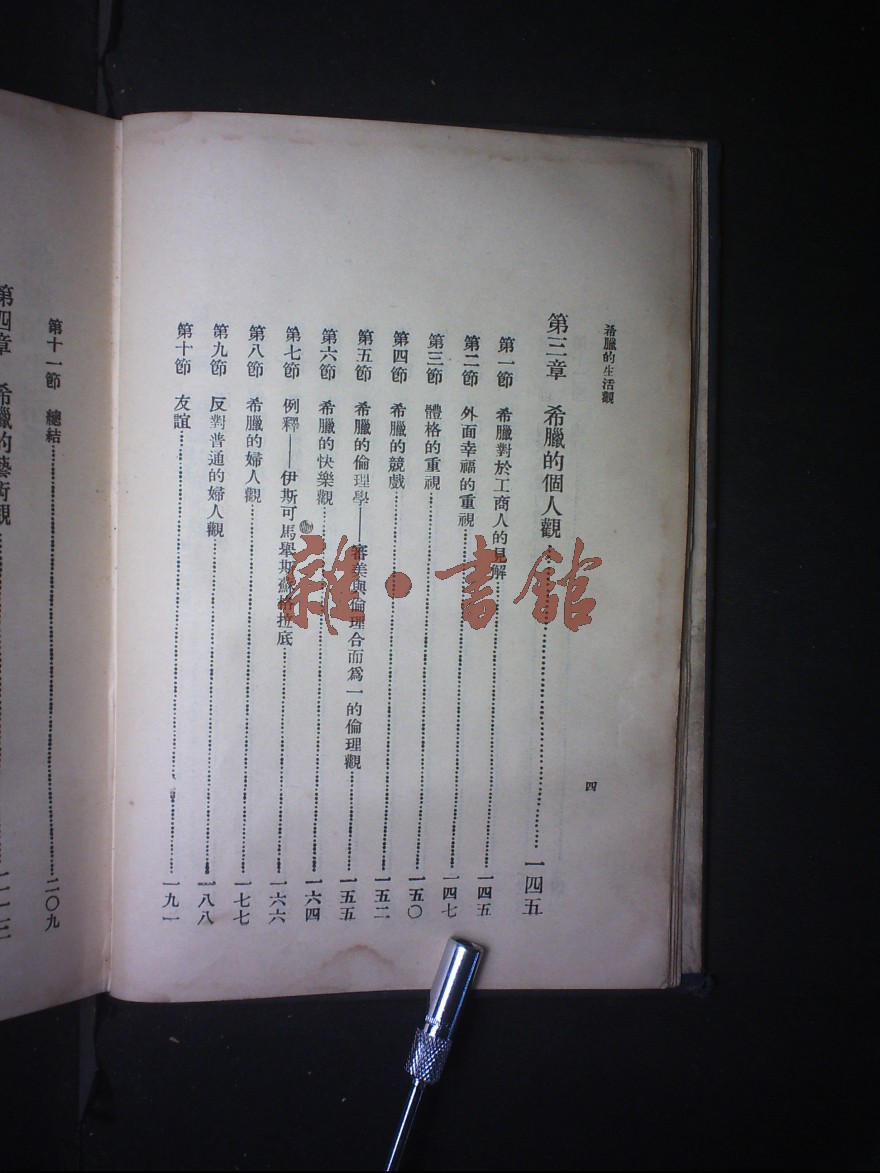 希臘的生活觀
四
第三章 希臘的個人觀……一四五
第一節 希臘對於工商人的見解……一四五
第二節 外面幸福的重視……一四七
第三節 體格的重視……一五〇
第四節 希臘的競戲……一五二
第五節 希臘的倫理學——審美與倫理合而為一的倫理觀……一五五
第六節 希臘的快樂觀……一六四
第七節 例釋——伊斯可馬舉斯蘇格拉底……一六六
第八節 希臘的婦人觀……一七七
第九節 反對普通的婦人觀……一八八
第十節 友誼……一九一
第十一節 總結……二〇九
第四章 希臘的藝術觀……二一三
雜·書館